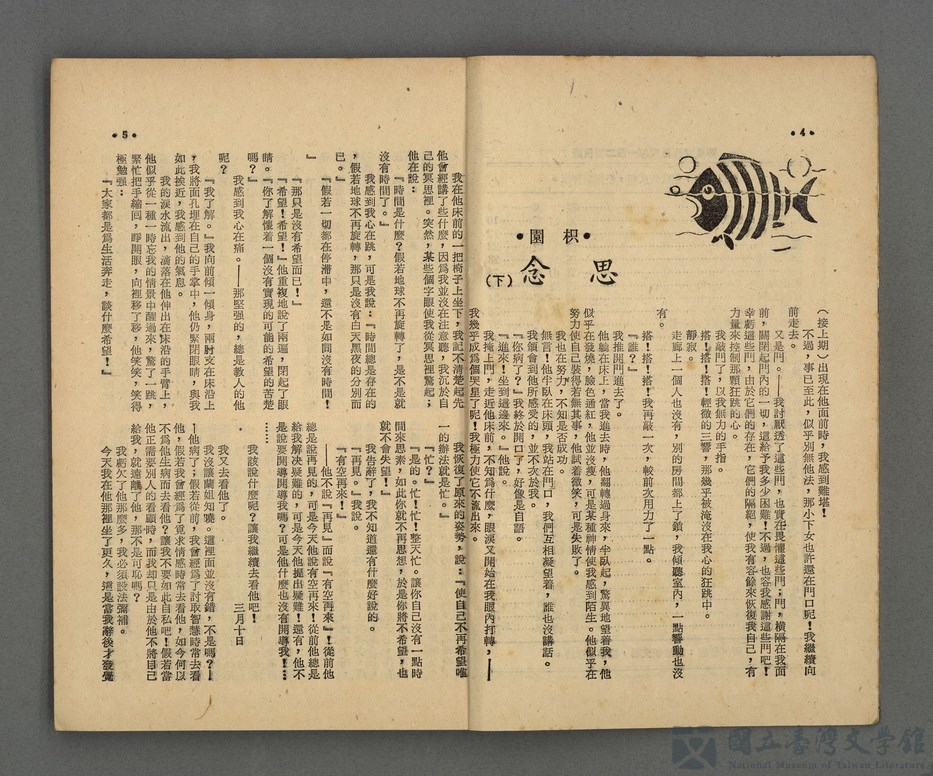 •4•
•園枳•
思念
(下)
（接上期）出現在他面前時，我感到難堪！
不過，事已至此，似乎別無他法，那小下女也許還在門口呢！我繼續向
前走去。
又是門。——我討厭透了這些門，也實在畏懼這些門；門，橫隔在我面
前，關閉起門內的一切，這給予我多少困難！不過，也容我感謝這些門吧！
幸虧這些門，由於它們的存在，它們的隔絕，使我有容餘來恢復我自己，有
力量來控制那顆狂跳的心。
我敲門了，以我無力的手指。
搭！搭！搭！輕微的三響，那幾乎被淹沒在我心的狂跳中。
靜寂。
走廊上一個人也沒有，別的房間都上了鎖，我傾聽室內，一點響動也沒
有。
搭！搭！搭！我再敲一次，較前次用力了一點。
『誰？』
我推開門進去了。
他躺在床上，當我進去時，他翻轉過身來，半臥起，驚異地望着我，他
似乎在發燒，臉色通紅，他並沒瘦，可是某種神情使我感到陌生。他似乎在
努力使自己裝得若無其事，他試着微笑，可是失敗了。
我也在努力，不知是否成功。
無言！他半臥在床頭，我站在門口，我們互相凝望着，誰也沒講話。
我領會到他所感受的，並不次於我。
『你病了？』我終於開口了，好像是自語。
『進來！坐到這邊來。』他說。
我掩上門，走近他床前，不知為什麼，眼淚又開始在我眼內打轉，——
我幾乎成為個哭星了呢！我極力使它不流出來。
•5•
我在他床前的一把椅子上坐下，我記不清楚起先
他曾經講了些什麼，因為我並沒在注意聽，我沉於自
己的冥思裡。突然，某些個字眼使我從冥思裡驚起；
他在說：
『時間是什麼？假若地球不再旋轉了，是不是就
沒有時間了。』
我感到我心在跳，可是我說：『時間總是存在的
，假若地球不再旋轉，那只是沒有白天黑夜的分別而
已。』
『假若一切都在停滯中，還不是如同沒有時間！
』
『那只是沒有希望而已！』
『希望！希望！』他重複地說了兩遍，閉起了眼
睛。『你了解懷着一個沒有實現的可能的希望的苦楚
嗎？』
我感到我心在痛。——那堅強的，總是教人的他
呢？
『我了解。』我向前傾一傾身，兩肘支在床沿上
，我將面孔埋在自己的手掌中，他仍緊閉眼睛，與我
如此挨近，我感到他的氣息。
我的淚水流出，滴落在他伸出在床沿的手臂上，
他似乎從一種一時忘我的情景中醒過來，驚了一跳，
緊忙把手縮回，睜開眼，向裡移了移，他笑笑，笑得
極勉強：
『大家都是為生活奔走，談什麼希望！』
我恢復了原來的姿勢，說：『使自己不再希望唯
一的辦法就是忙。』
『忙？』
『是的。忙！忙！整天忙。讓你自己沒有一點時
間來思素，如此你就不再思想，於是你將不希望，也
就不會失望！』
我告辭了，我不知道還有什麼好說的。
『再見。』我說。
『有空再來！』
——他不說『再見』而說『有空再來』！從前他
總是說再見的，可是今天他說有空再來！從前他總是
給我解決疑難的，可是今天他提出疑難！還有，他不
是說要開導開導我嗎？可是他什麼也沒有開導我！…
……
我該說什麼呢？讓我繼續去看他吧！
三月十日
我又去看他了。
我沒讓蘭姐知曉。這裡面並沒有錯，不是嗎？—
—他病了；假若從前，我曾經為了討取智慧時常去看
他，假若我曾經為了覓求情感時常去看他，如今何以
不為他生病而去看他？讓我不要如此自私吧！假若當
他正需要別人的看顧時，而我却只是由於他不將自己
給我，就遠離了他，那不是可恥嗎？
我虧欠了他那麼多，我必須設法彌補。
今天我在他那裡坐了更久，還是當我辭後才發覺
國立臺灣文學館
National Museum of Taiwan Literature